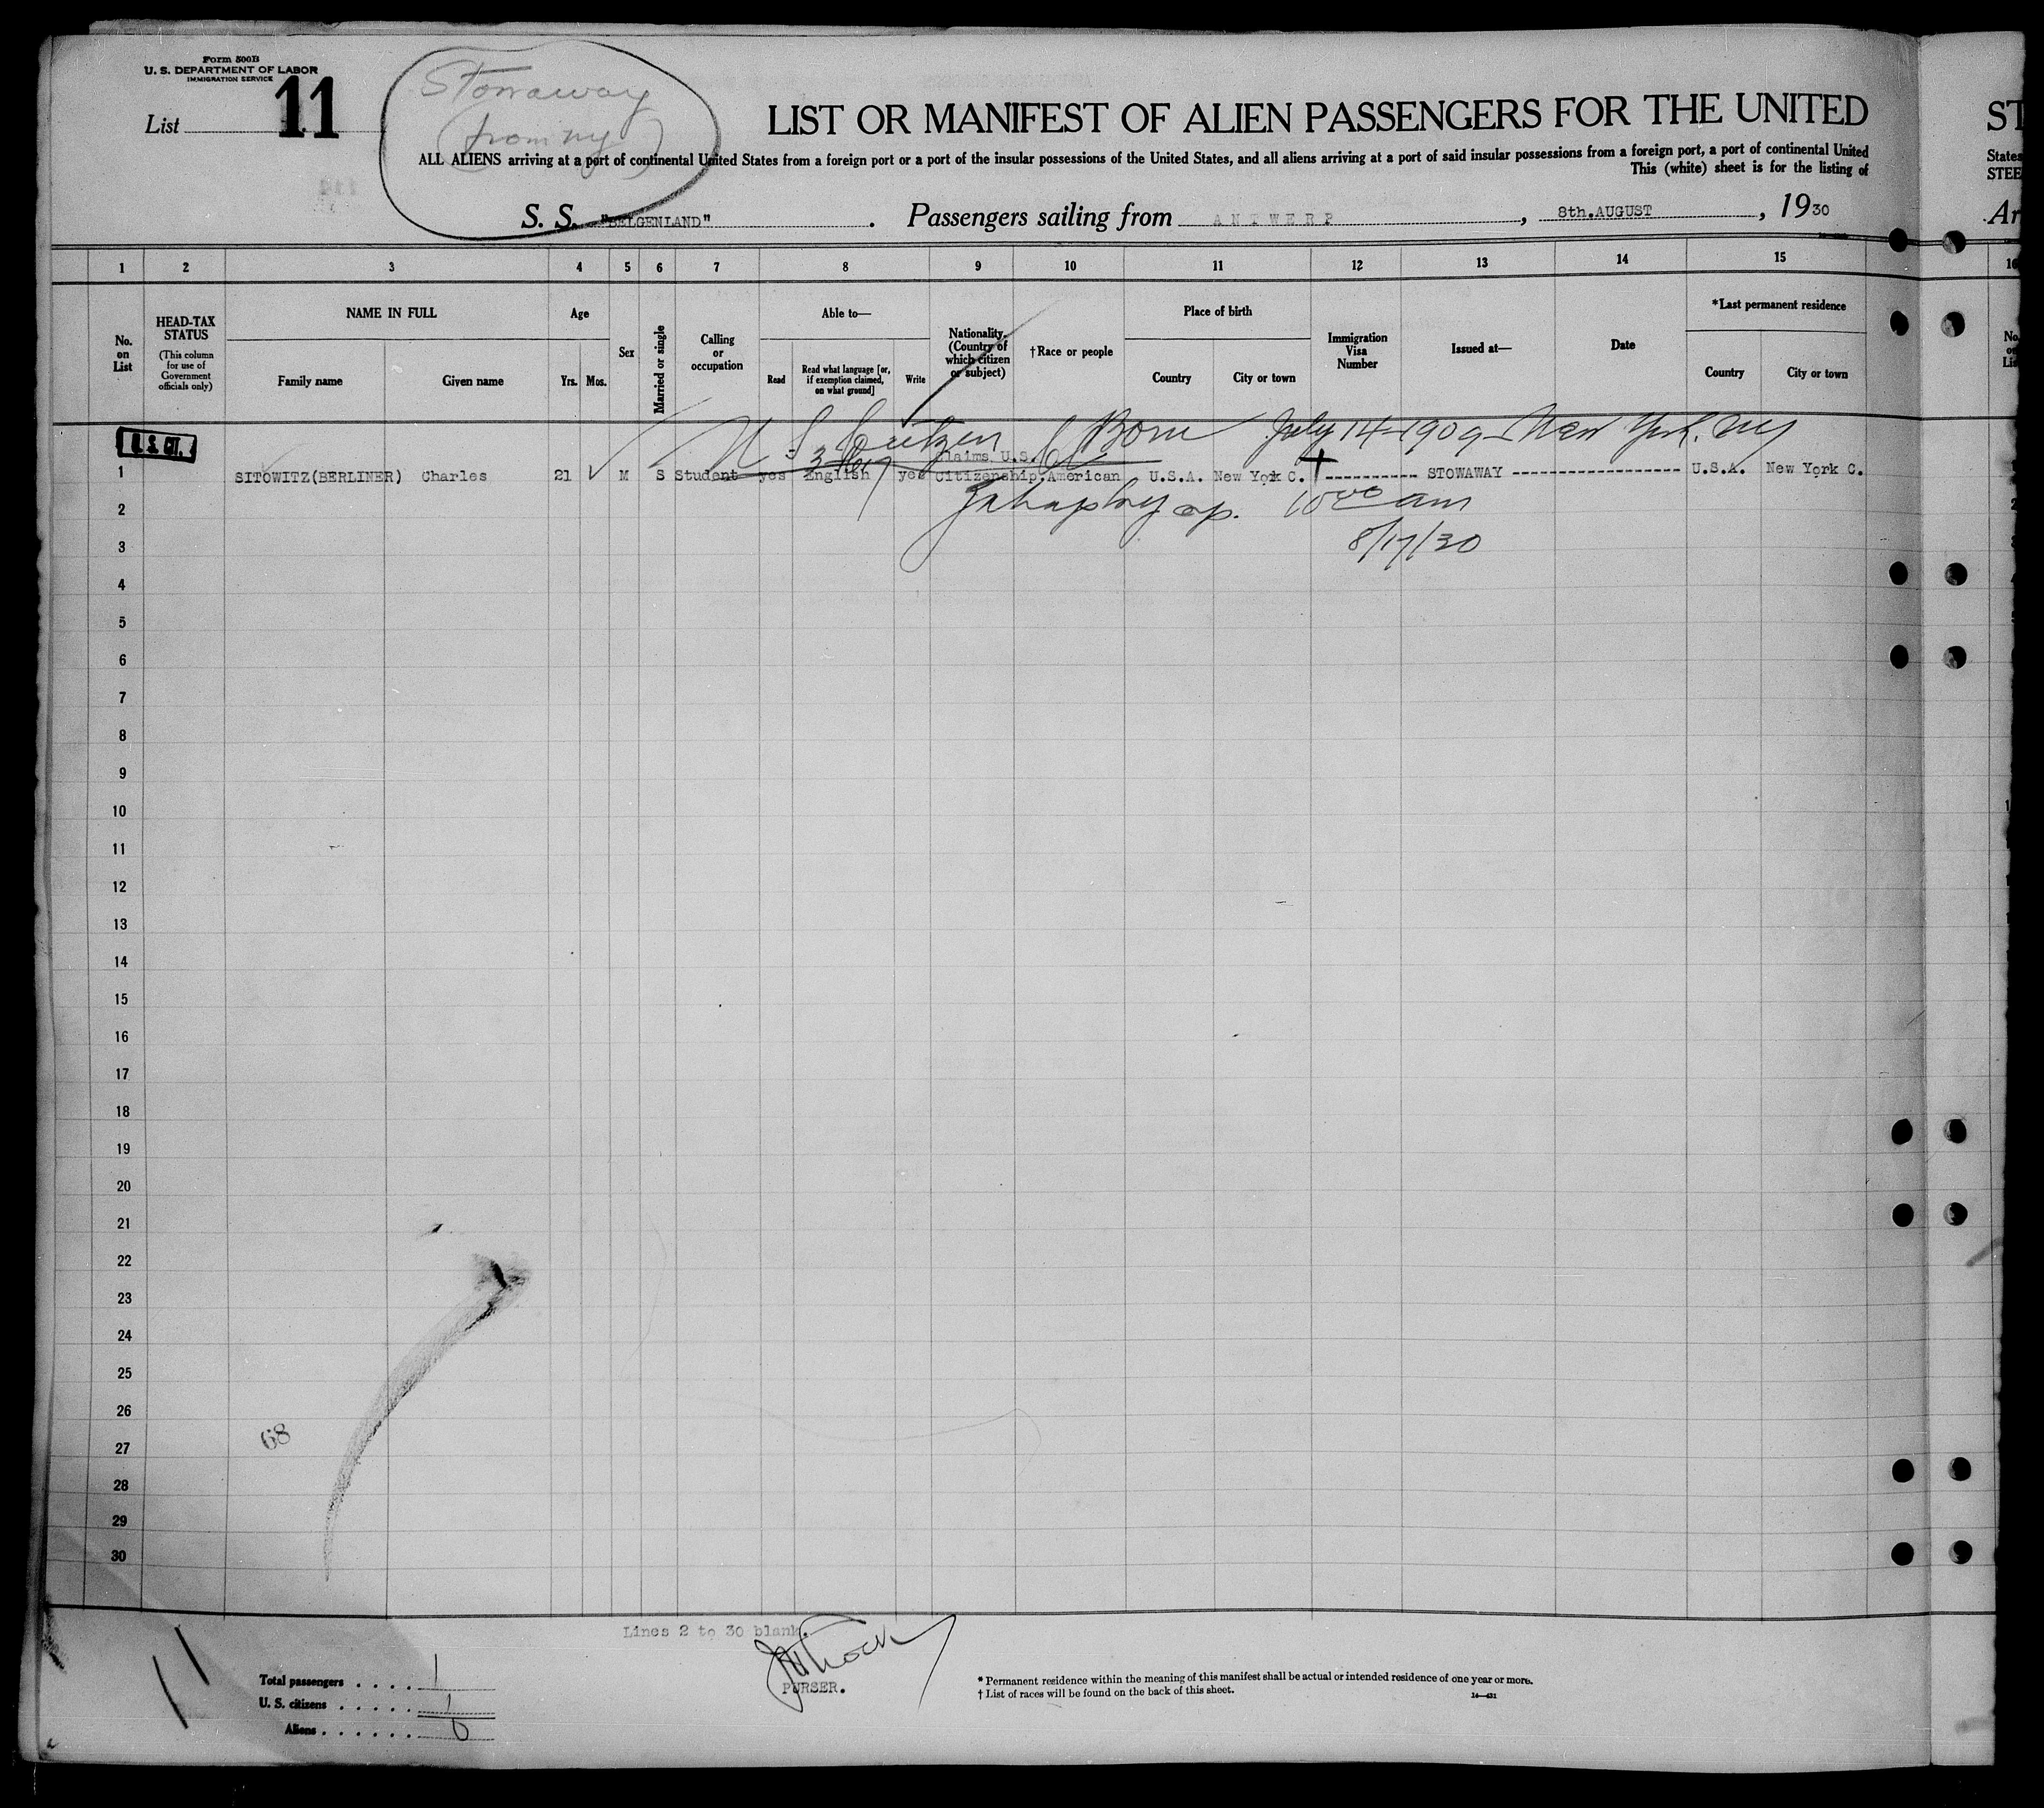 Form 500B
U. S. DEPARTMENT OF LABOR
IMMIGRATION SERVICE
List 11
Stowaway
(from ny)
LIST OR MANIFEST OF ALIEN PASSENGERS FOR THE UNITED
ST
ALL ALIENS arriving at a port of continental United States from a foreign port or a port of the insular possessions of the United States, and all aliens arriving at a port of said insular possessions from a foreign port, a port of continental United
States
This (white) sheet is for the listing of
STEE
S. S. "BELGENLAND". Passengers sailing from ANTWERP, 8th.AUGUST, 1930
Ar
1 2 3 4 5 6 7 8 9 10 11 12 13 14 15
16
No. on List
HEAD-TAX STATUS
(This column for use of Government officials only)
NAME IN FULL
Family name
Given name
Age
Yrs. Mos.
Sex
Married or single
Calling or occupation
Able to—
Read
Read what language [or, if exemption claimed, on what ground]
Write
Nationality. (Country of which citizen or subject)
†Race or people
Place of birth
Country
City or town
Immigration Visa Number
Issued at—
Date
*Last permanent residence
Country
City or town
U. S. CIT.
U S Citizen Born July 14-1909-New York, NY
Claims U.S.
1 SITOWITZ(BERLINER) Charles 21 M S Student yes English yes Citizenship. American U.S.A. New York C. ---------- STOWAWAY ------------------ U.S.A. New York C.
10 00 am
8/17/30
2
3
4
5
6
7
8
9
10
11
12
13
14
15
16
17
18
19
20
21
22
23
24
25
26
27
28
29
30
68
Lines 2 to 30 blank.
PURSER.
11
Total passengers . . . . 1
U. S. citizens . . . . . 1
Aliens . . . . . . 0
* Permanent residence within the meaning of this manifest shall be actual or intended residence of one year or more.
† List of races will be found on the back of this sheet.
14—431